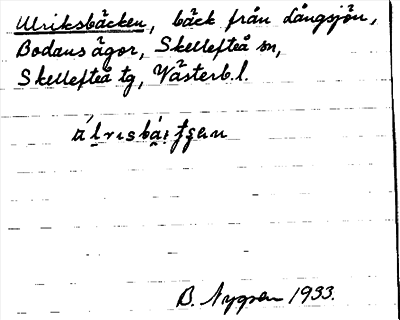 Ulriksbäcken, bäck från Långsjön,
Bodans ägor, Skellefteå sn,
Skellefteå tg, Västerb. l.
B. Nygren 1933.